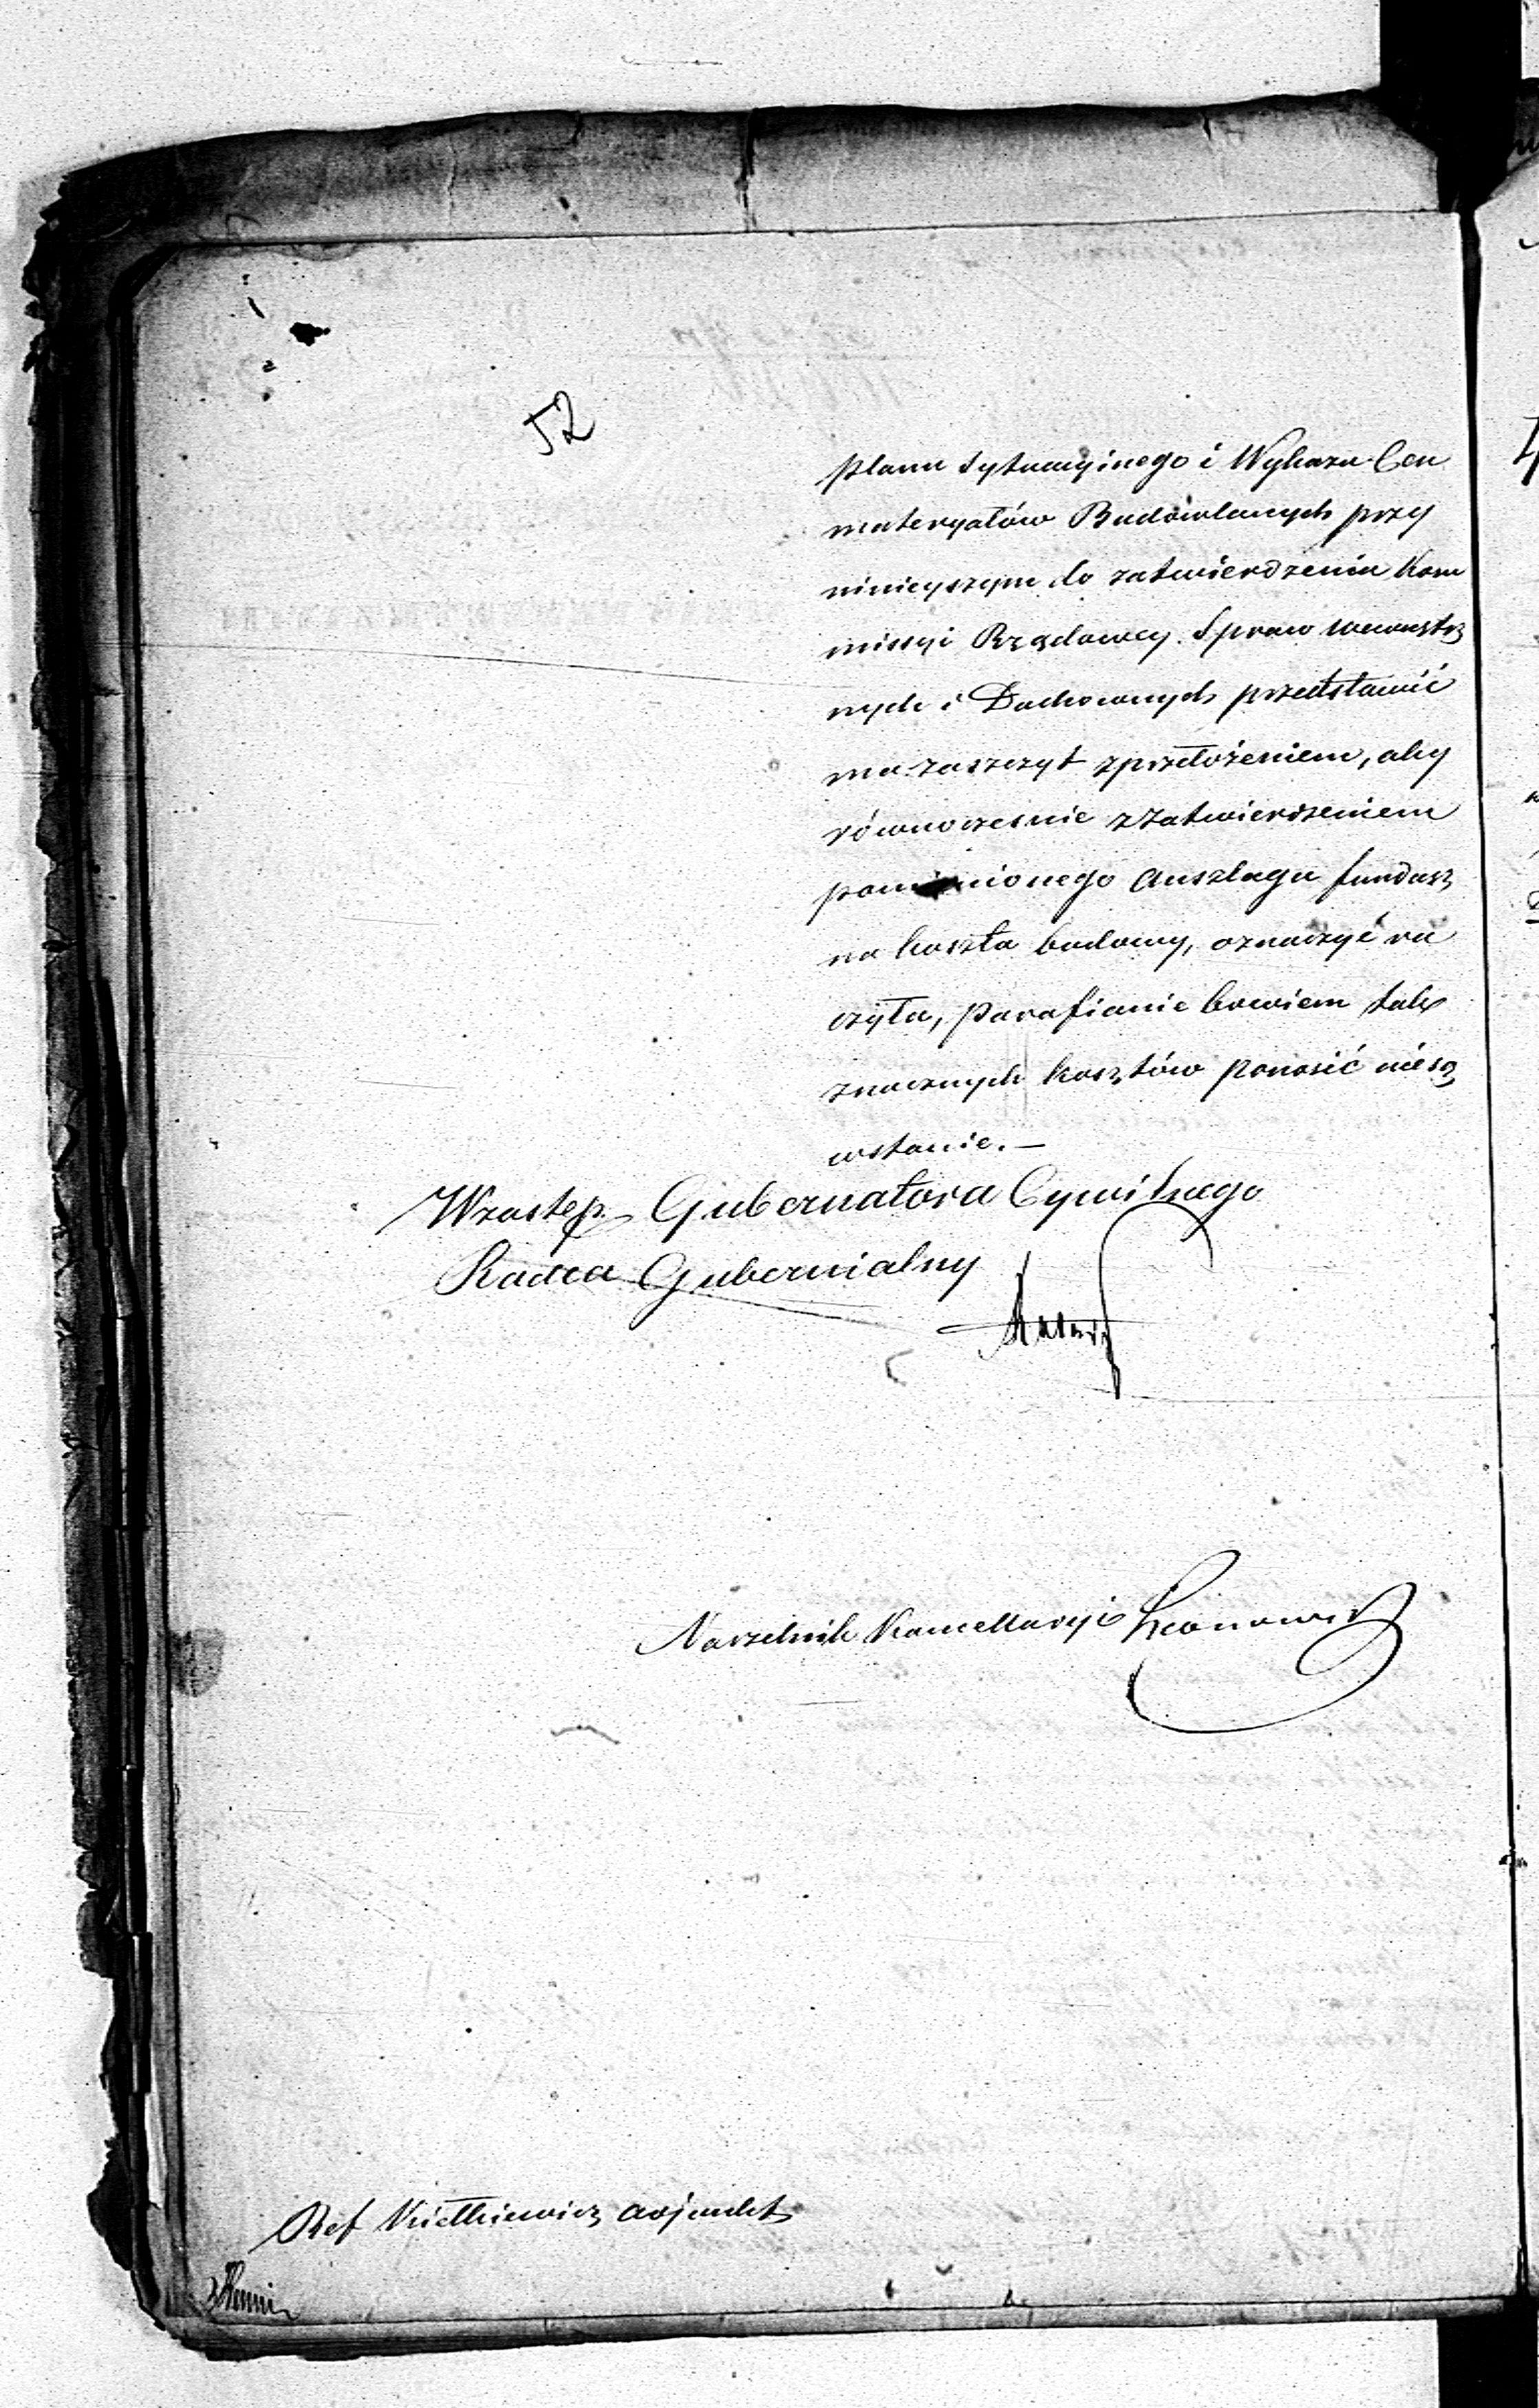 52
planu sytuacyjnego i Wykazu Cen
materyałów Budowlanych przy
ninieyszym do zatwierdzenia Kom
missyi Rządowey Spraw wewnętrz
nych i Duchownych przedstawić
ma zaszczyt zprzełożeniem, aby
równocześnie z zatwierdzeniem
pomienionego Anszlagu fundusz
na koszta budowy, oznaczyć ra
czyła, parafianie bowiem tak
znacznych kosztów ponosić nie są
wstanie. —
Wzastęp. Gubernatora Cywilnego
Radca Gubernialny
Naczelnik Kancellaryi
Ref adjunkt